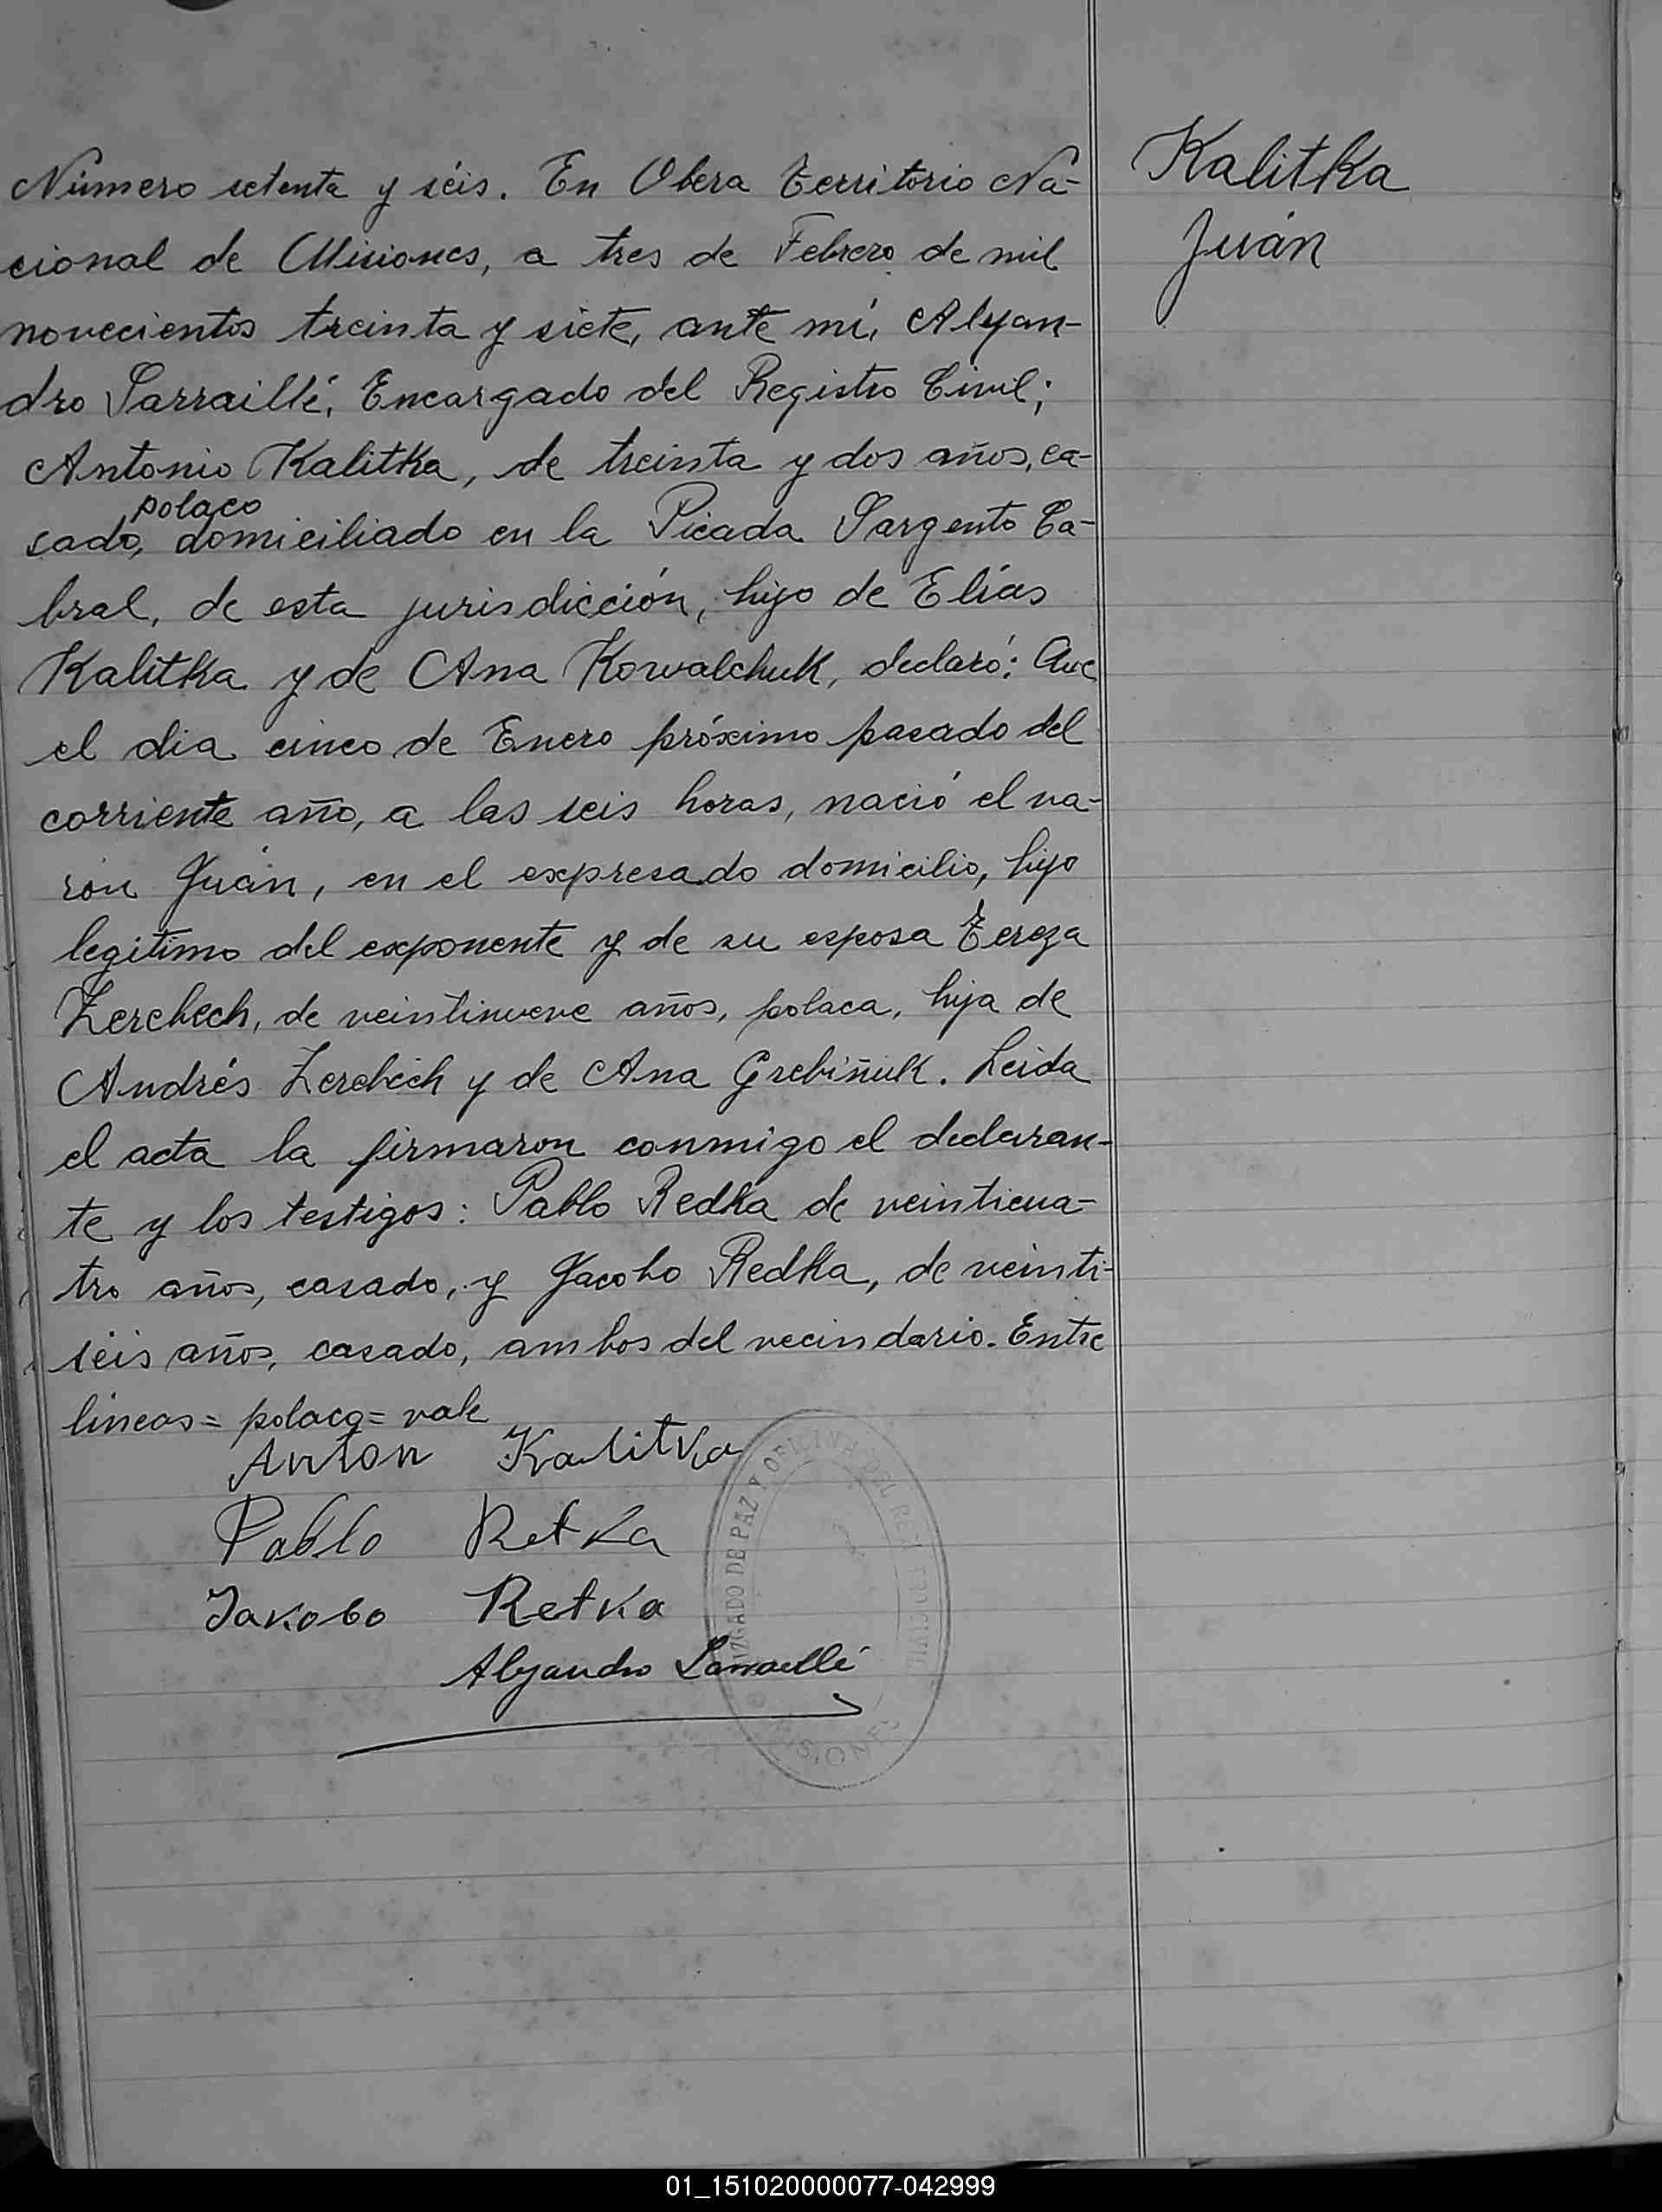 Número setenta y séis. En Obera Territorio Na-
cional de Misiones, a tres de Febrero de mil
novecientos treinta y siete, ante mí, Alejan-
dro Sarraillé, Encargado del Registro Civil;
Antonio Kalitka, de treinta y dos años, ca-
polaco
sado, domiciliado en la Picada Sargento Ca-
bral, de esta jurisdicción, hijo de Elías
Kalitka y de Ana Kowalchuk, declaró: Que
el dia cinco de Enero próximo pasado del
corriente año, a las seis horas, nació el va-
rón Juán, en el expresado domicilio, hijo
legítimo del exponente y de su esposa Tereza
Zerebech, de veintinueve años, polaca, hija de
Andrés Zerebech y de Ana Grebiñuk. Leida
el acta la firmaron conmigo el declaran-
te y los testigos: Pablo Redka de veinticua-
tro años, casado, y Jacobo Redka, de veinti-
séis años, casado, ambos del vecindario. Entre
lineas = polaco = vale
Anton Kalitka
Pablo Retka
Jakobo Retka
Alejandro Sarraillé
Kalitka
Juán
JUZGADO DE PAZ Y OFICINA DEL REGISTRO CIVIL
MISIONES
01_151020000077-042999